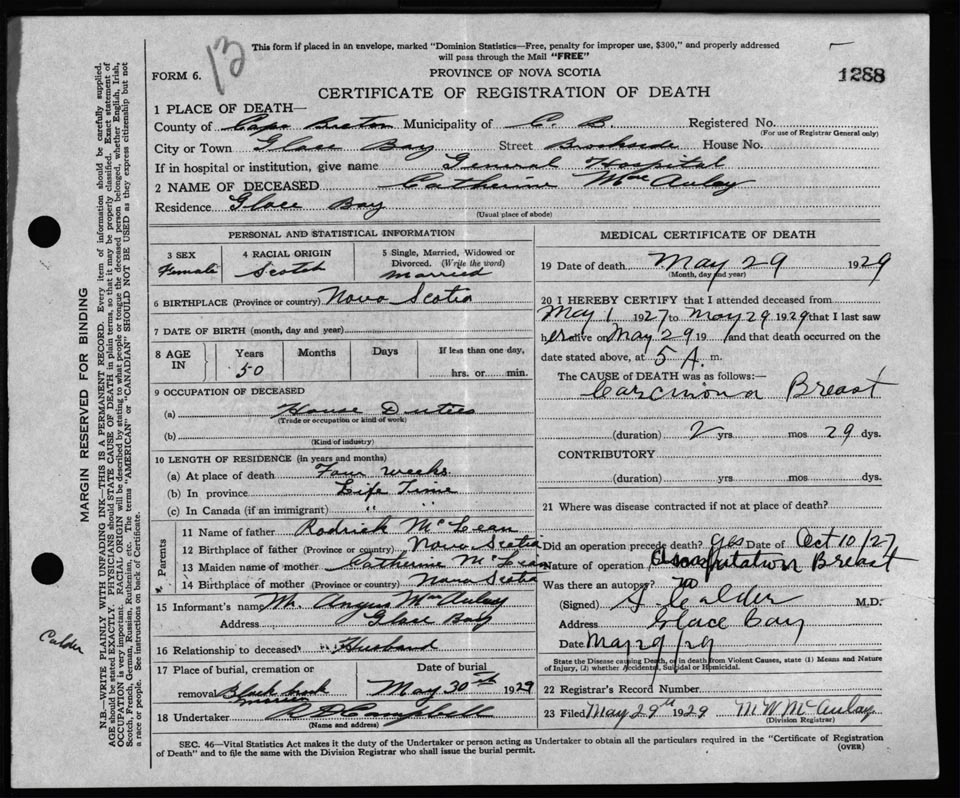 13
This form if placed in an envelope, marked "Dominion Statistics—Free, penalty for improper use, $300," and properly addressed
will pass through the Mail "FREE"
FORM 6.
PROVINCE OF NOVA SCOTIA
1288
CERTIFICATE OF REGISTRATION OF DEATH
1 PLACE OF DEATH—
County of Cape Breton Municipality of C. B. Registered No.
(For use of Registrar General only)
City or Town Glace Bay Street Brookside House No.
If in hospital or institution, give name General Hospital
2 NAME OF DECEASED Catherine MacAulay
Residence Glace Bay
(Usual place of abode)
PERSONAL AND STATISTICAL INFORMATION
3 SEX
Female
4 RACIAL ORIGIN
Scotch
5 Single, Married, Widowed or
Divorced. (Write the word)
Married
6 BIRTHPLACE (Province or country) Nova Scotia
7 DATE OF BIRTH (month, day and year)
8 AGE IN
Years Months Days If less than one day,
50
hrs. or min.
9 OCCUPATION OF DECEASED
(a) House Duties
(Trade or occupation or kind of work)
(b)
(Kind of industry)
10 LENGTH OF RESIDENCE (in years and months)
(a) At place of death Four weeks
(b) In province Life Time
(c) In Canada (if an immigrant) " "
Parents
11 Name of father Rodrick McLean
12 Birthplace of father (Province or country) Nova Scotia
13 Maiden name of mother Catherine McLean
14 Birthplace of mother (Province or country) Nova Scotia
15 Informant's name Mr. Angus MacAulay
Address Glace Bay
16 Relationship to deceased Husband
17 Place of burial, cremation or
removal Black brook
Date of burial
May 30th 1929
18 Undertaker Campbell
(Name and address)
MEDICAL CERTIFICATE OF DEATH
19 Date of death May 29 1929
(Month, day and year)
20 I HEREBY CERTIFY that I attended deceased from
May 1 1927 to May 29 1929 that I last saw
her alive on May 29 19 and that death occurred on the
date stated above, at 5 A. m.
The CAUSE OF DEATH was as follows:—
Carcinoma Breast
(duration) 2 yrs mos 29 dys.
CONTRIBUTORY
(duration) yrs. mos. dys.
21 Where was disease contracted if not at place of death?
Did an operation precede death? Yes Date of Oct 10/27
Nature of operation Amputation Breast
Was there an autopsy? no
(Signed) Calder M.D.
Address Glace Bay
Date May 29/29
State the Disease causing Death, or in death from Violent Causes, state (1) Means and Nature
of Injury, (2) whether Accidental, Suicidal or Homicidal.
22 Registrar's Record Number
23 Filed May 29th 1929 M W McAulay
(Division Registrar)
SEC. 46—Vital Statistics Act makes it the duty of the Undertaker or person acting as Undertaker to obtain all the particulars required in the "Certificate of Registration
of Death" and to file the same with the Division Registrar who shall issue the burial permit.
(OVER)
MARGIN RESERVED FOR BINDING
N.B.—WRITE PLAINLY WITH UNFADING INK—THIS IS A PERMANENT RECORD. Every item of information should be carefully supplied.
AGE should be stated EXACTLY. PHYSICIANS should STATE CAUSE OF DEATH in plain terms, so that it may be properly classified. Exact statement of
OCCUPATION is very important. RACIAL ORIGIN will be described by stating to what people or tongue the deceased person belonged, whether English, Irish,
Scotch, French, German, Russian, Ruthenian, etc. The terms "AMERICAN" or "CANADIAN" SHOULD NOT BE USED as they express citizenship but not
a race or people. See instructions on back of Certificate.
Calder